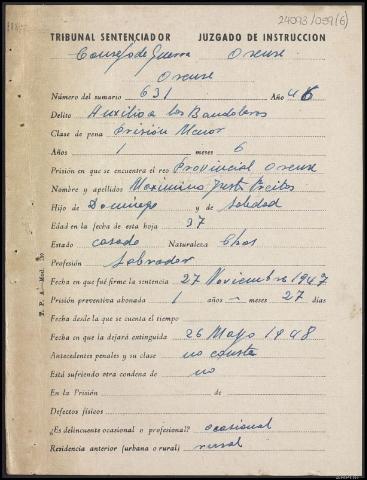 24093/059(6)
TRIBUNAL SENTENCIADOR JUZGADO DE INSTRUCCION
Consejo de Guerra Orense
Orense
Número del sumario 631 Año 46
Delito Auxilio a los Bandoleros
Clase de pena Prisión Menor
Años 1 meses 6
Prisión en que se encuentra el reo Provincial Orense
Nombre y apellidos Maximino Justo Freitas
Hijo de Domingo y de Soledad
Edad en la fecha de esta hoja 37
Estado casado Naturaleza
Profesión Labrador
Fecha en que fué firme la sentencia 27 Noviembre 1947
Prisión preventiva abonada 1 años - meses 27 días
Fecha desde la que se cuenta el tiempo
Fecha en que la dejará extinguida 26 Mayo 1948
Antecedentes penales y su clase no consta
Está sufriendo otra condena de no
En la Prisión de
Defectos físicos
¿Es delincuente ocasional o profesional? ocasional
Residencia anterior (urbana o rural) rural